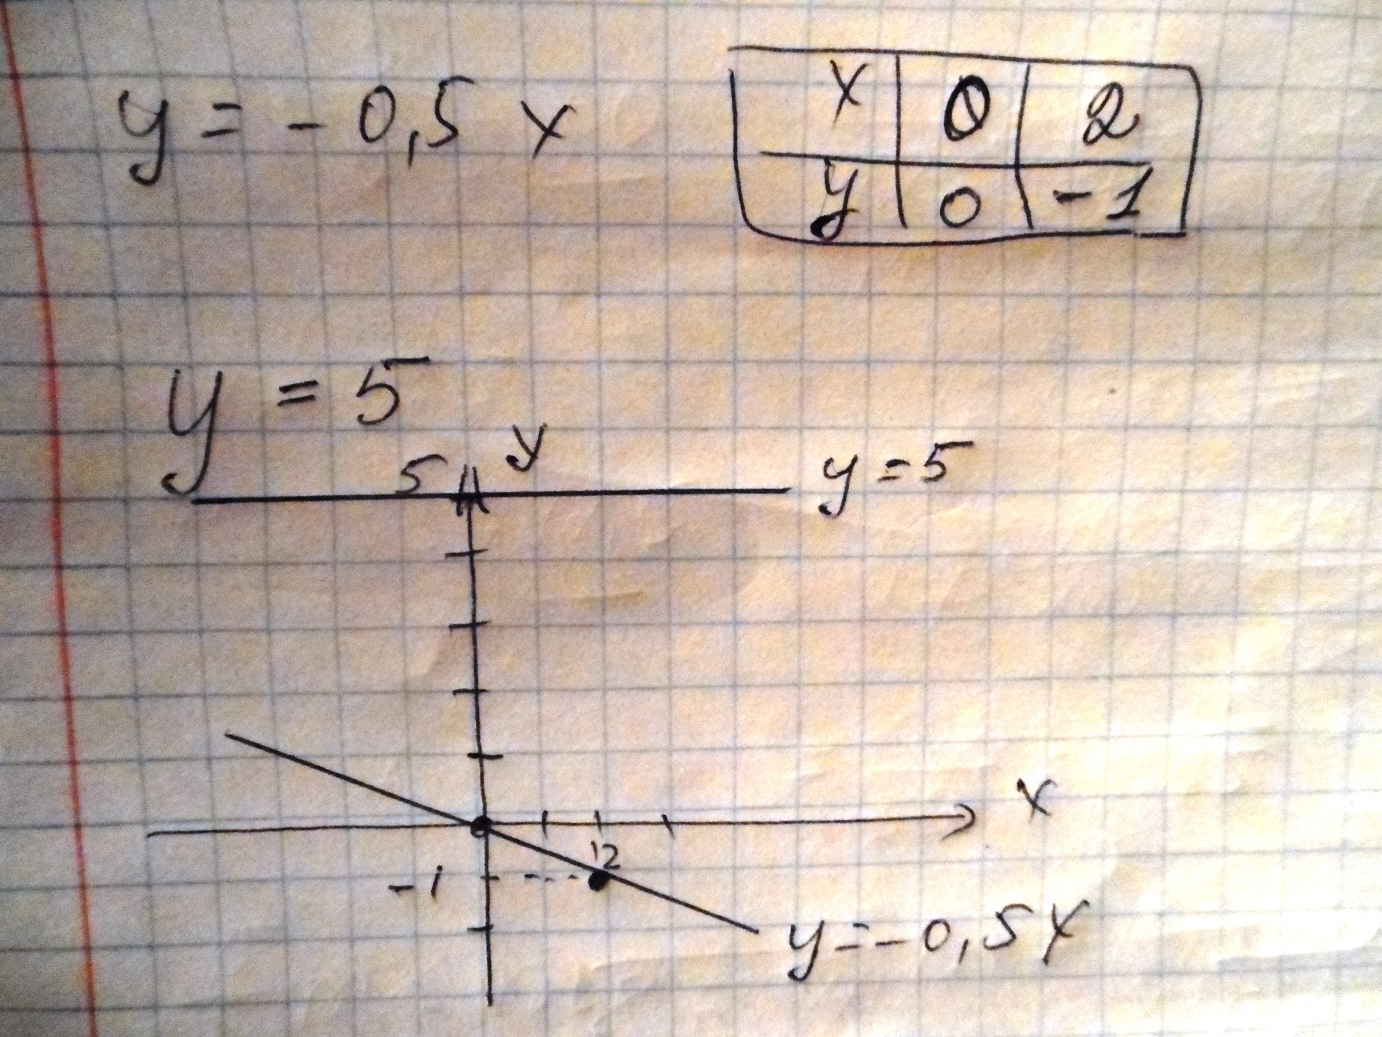 y = - 0,5 x
x 0 2
y 0 -1
y = 5
y
5
y = 5
x
2
-1
y = -0,5x